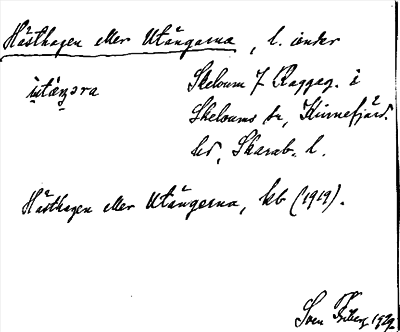 Hästhagen eller Utängarna, l. under
ùtäŋɜra Skeloum 7 Raggag. i
Skelvums sn, Kinnefjärd.
hd, Skarab. l.
Hästhagen eller Utängerna, kb (1919).
Sven Friberg 1929